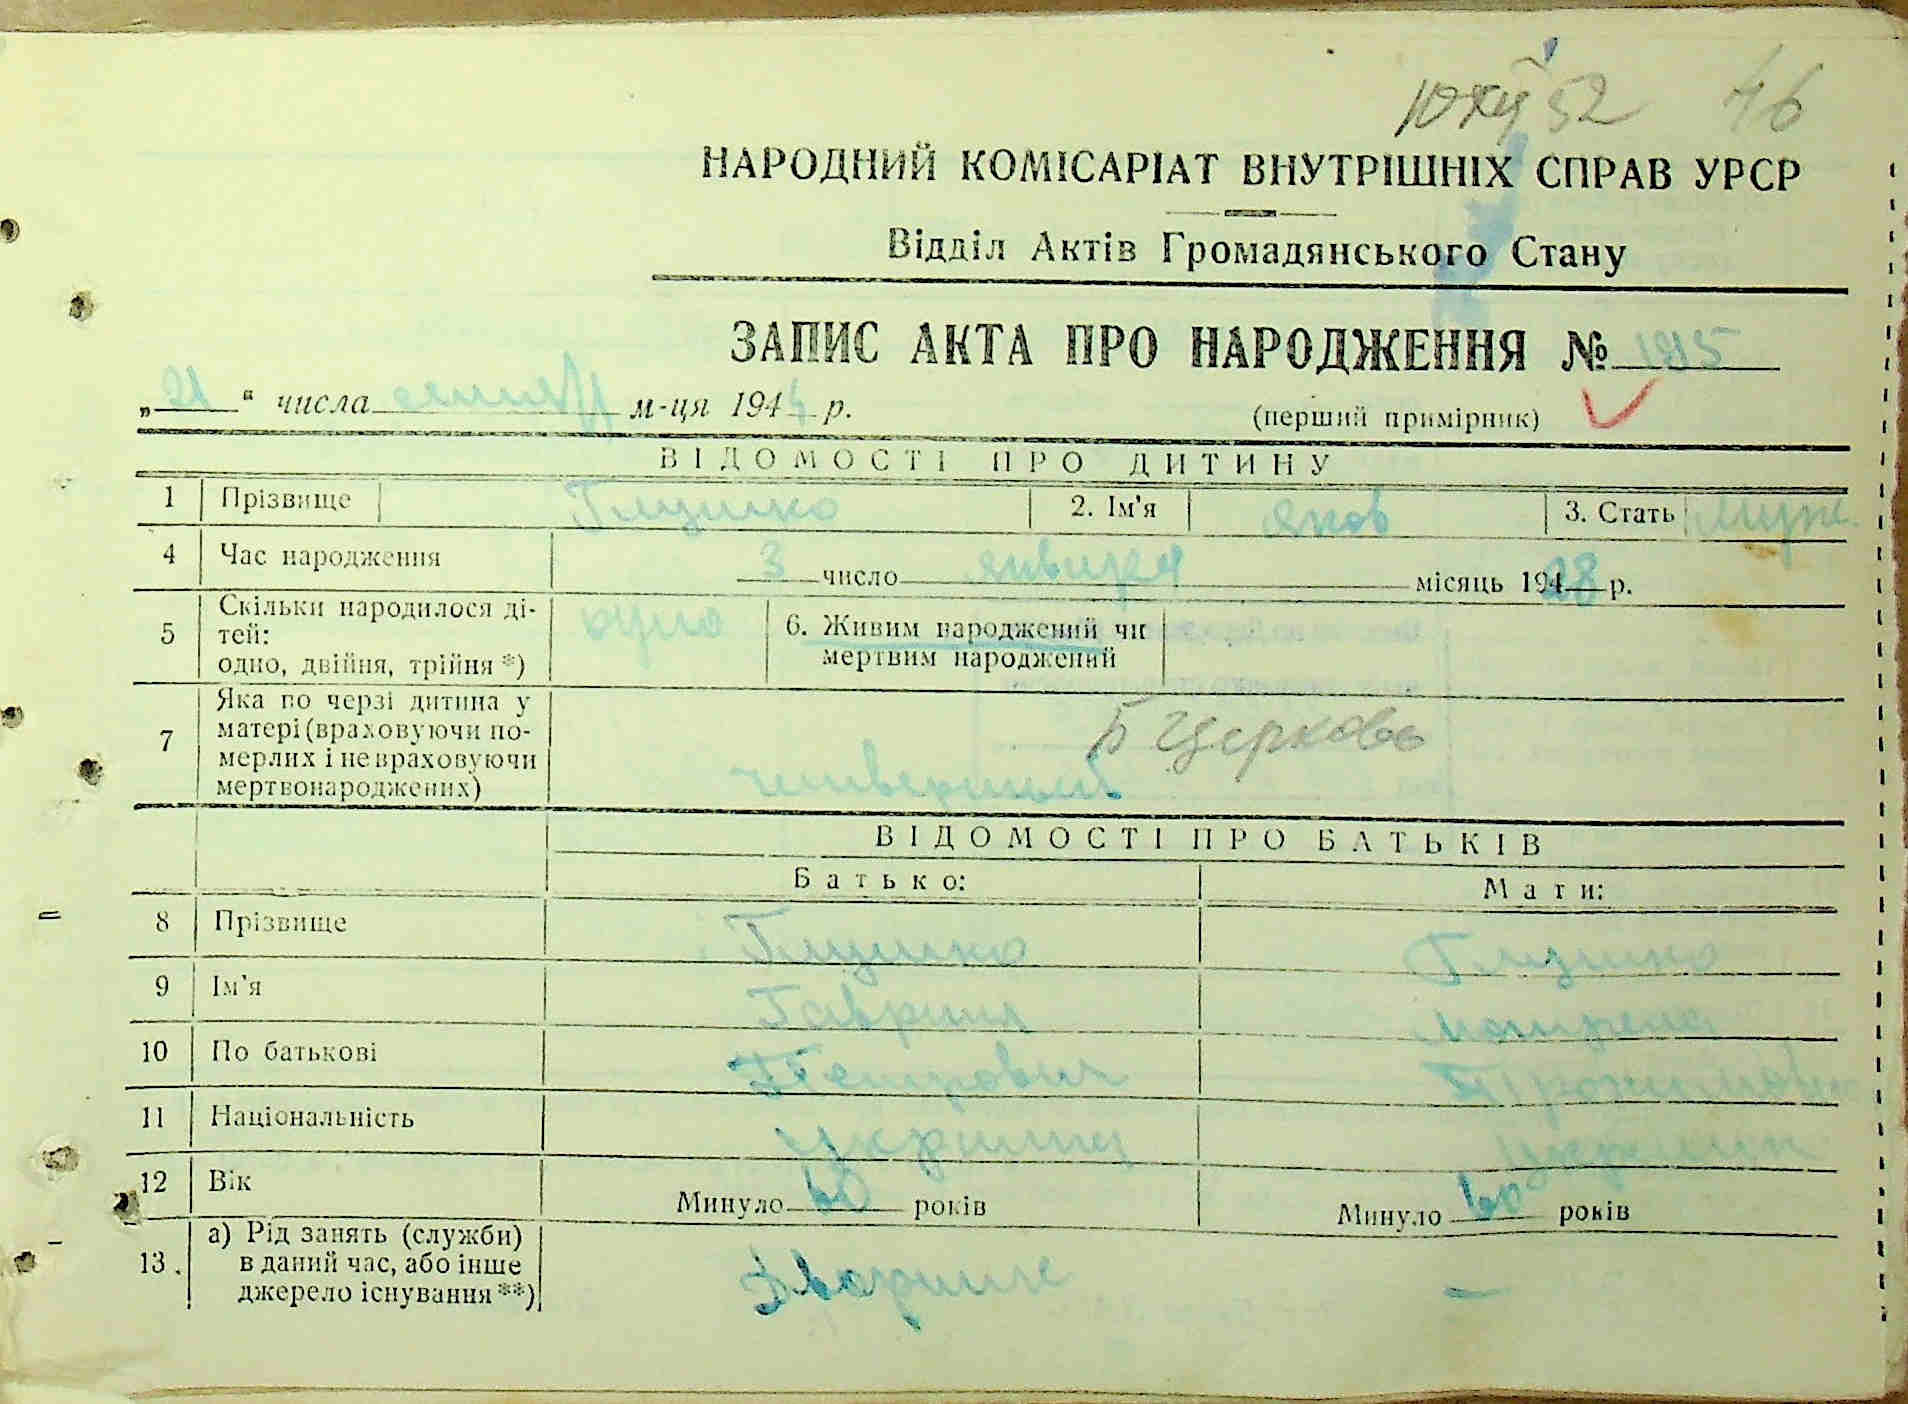 52 46
НАРОДНИЙ КОМІСАРІАТ ВНУТРІШНІХ СПРАВ УРСР
Відділ Актів Громадянського Стану
ЗАПИС АКТА ПРО НАРОДЖЕННЯ № 1915
„21“ числа м-ця 1944 р.
(перший примірник)
ВІДОМОСТІ ПРО ДИТИНУ
1 Прізвище Глушко 2. Ім'я Яков 3. Стать Муж.
4 Час народження 3 число января місяць 1928 р.
5 Скільки народилося ді-
тей:
одно, двійня, трійня *) одно 6. Живим народжений чи
мертвим народжений
7 Яка по черзі дитина у
матері (враховуючи по-
мерлих і не враховуючи
мертвонароджених) четвертый
Б Церковь
ВІДОМОСТІ ПРО БАТЬКІВ
Батько: Мати:
8 Прізвище Глушко Глушко
9 Ім'я Гаврил Матрена
10 По батькові Петрович
11 Національність
12 Вік Минуло 60 років Минуло 60 років
13. а) Рід занять (служби)
в даний час, або інше
джерело існування **) —